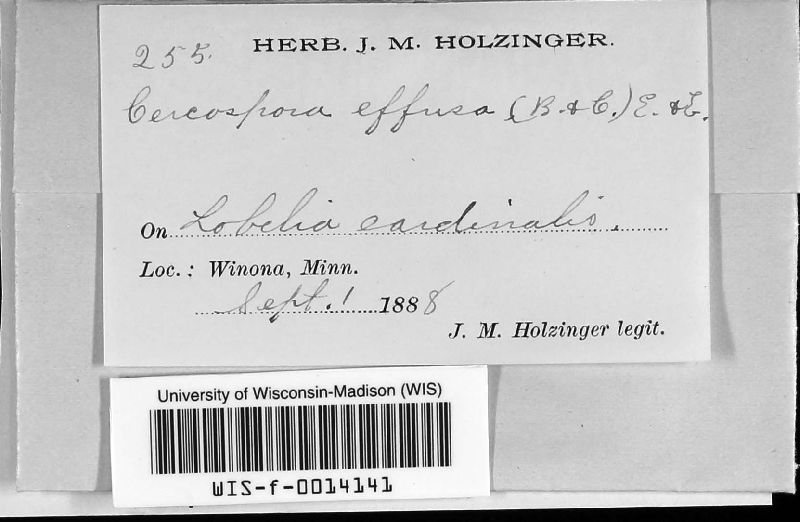 255. HERB. J. M. HOLZINGER.
Cercospora effusa (B. & C.) E. & E.
On Lobelia cardinalis.
Loc.: Winona, Minn.
Sept. 1 1888
J. M. Holzinger legit.
University of Wisconsin-Madison (WIS)
WIS-f-0014141